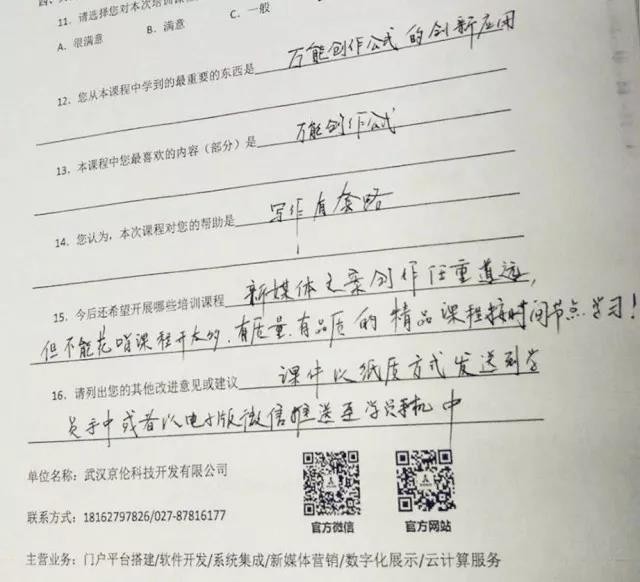 11. 请选择您对本次培训课程
A. 很满意 B. 满意 C. 一般
12. 您从本课程中学到的最重要的东西是 万能创作公式的创新应用
13. 本课程中您最喜欢的内容（部分）是 万能创作公式
14. 您认为，本次课程对您的帮助是 写作有套路
15. 今后还希望开展哪些培训课程 新媒体文案创作任重道远，
但不能光咱课程开太多，有质量、有品质的精品课程按时间节点学习！
16. 请列出您的其他改进意见或建议 课件以纸质方式发送到学
员手中或者以电子版微信推送至学员手机中
单位名称：武汉京伦科技开发有限公司
联系方式：18162797826/027-87816177
官方微信 官方网站
主营业务：门户平台搭建/软件开发/系统集成/新媒体营销/数字化展示/云计算服务